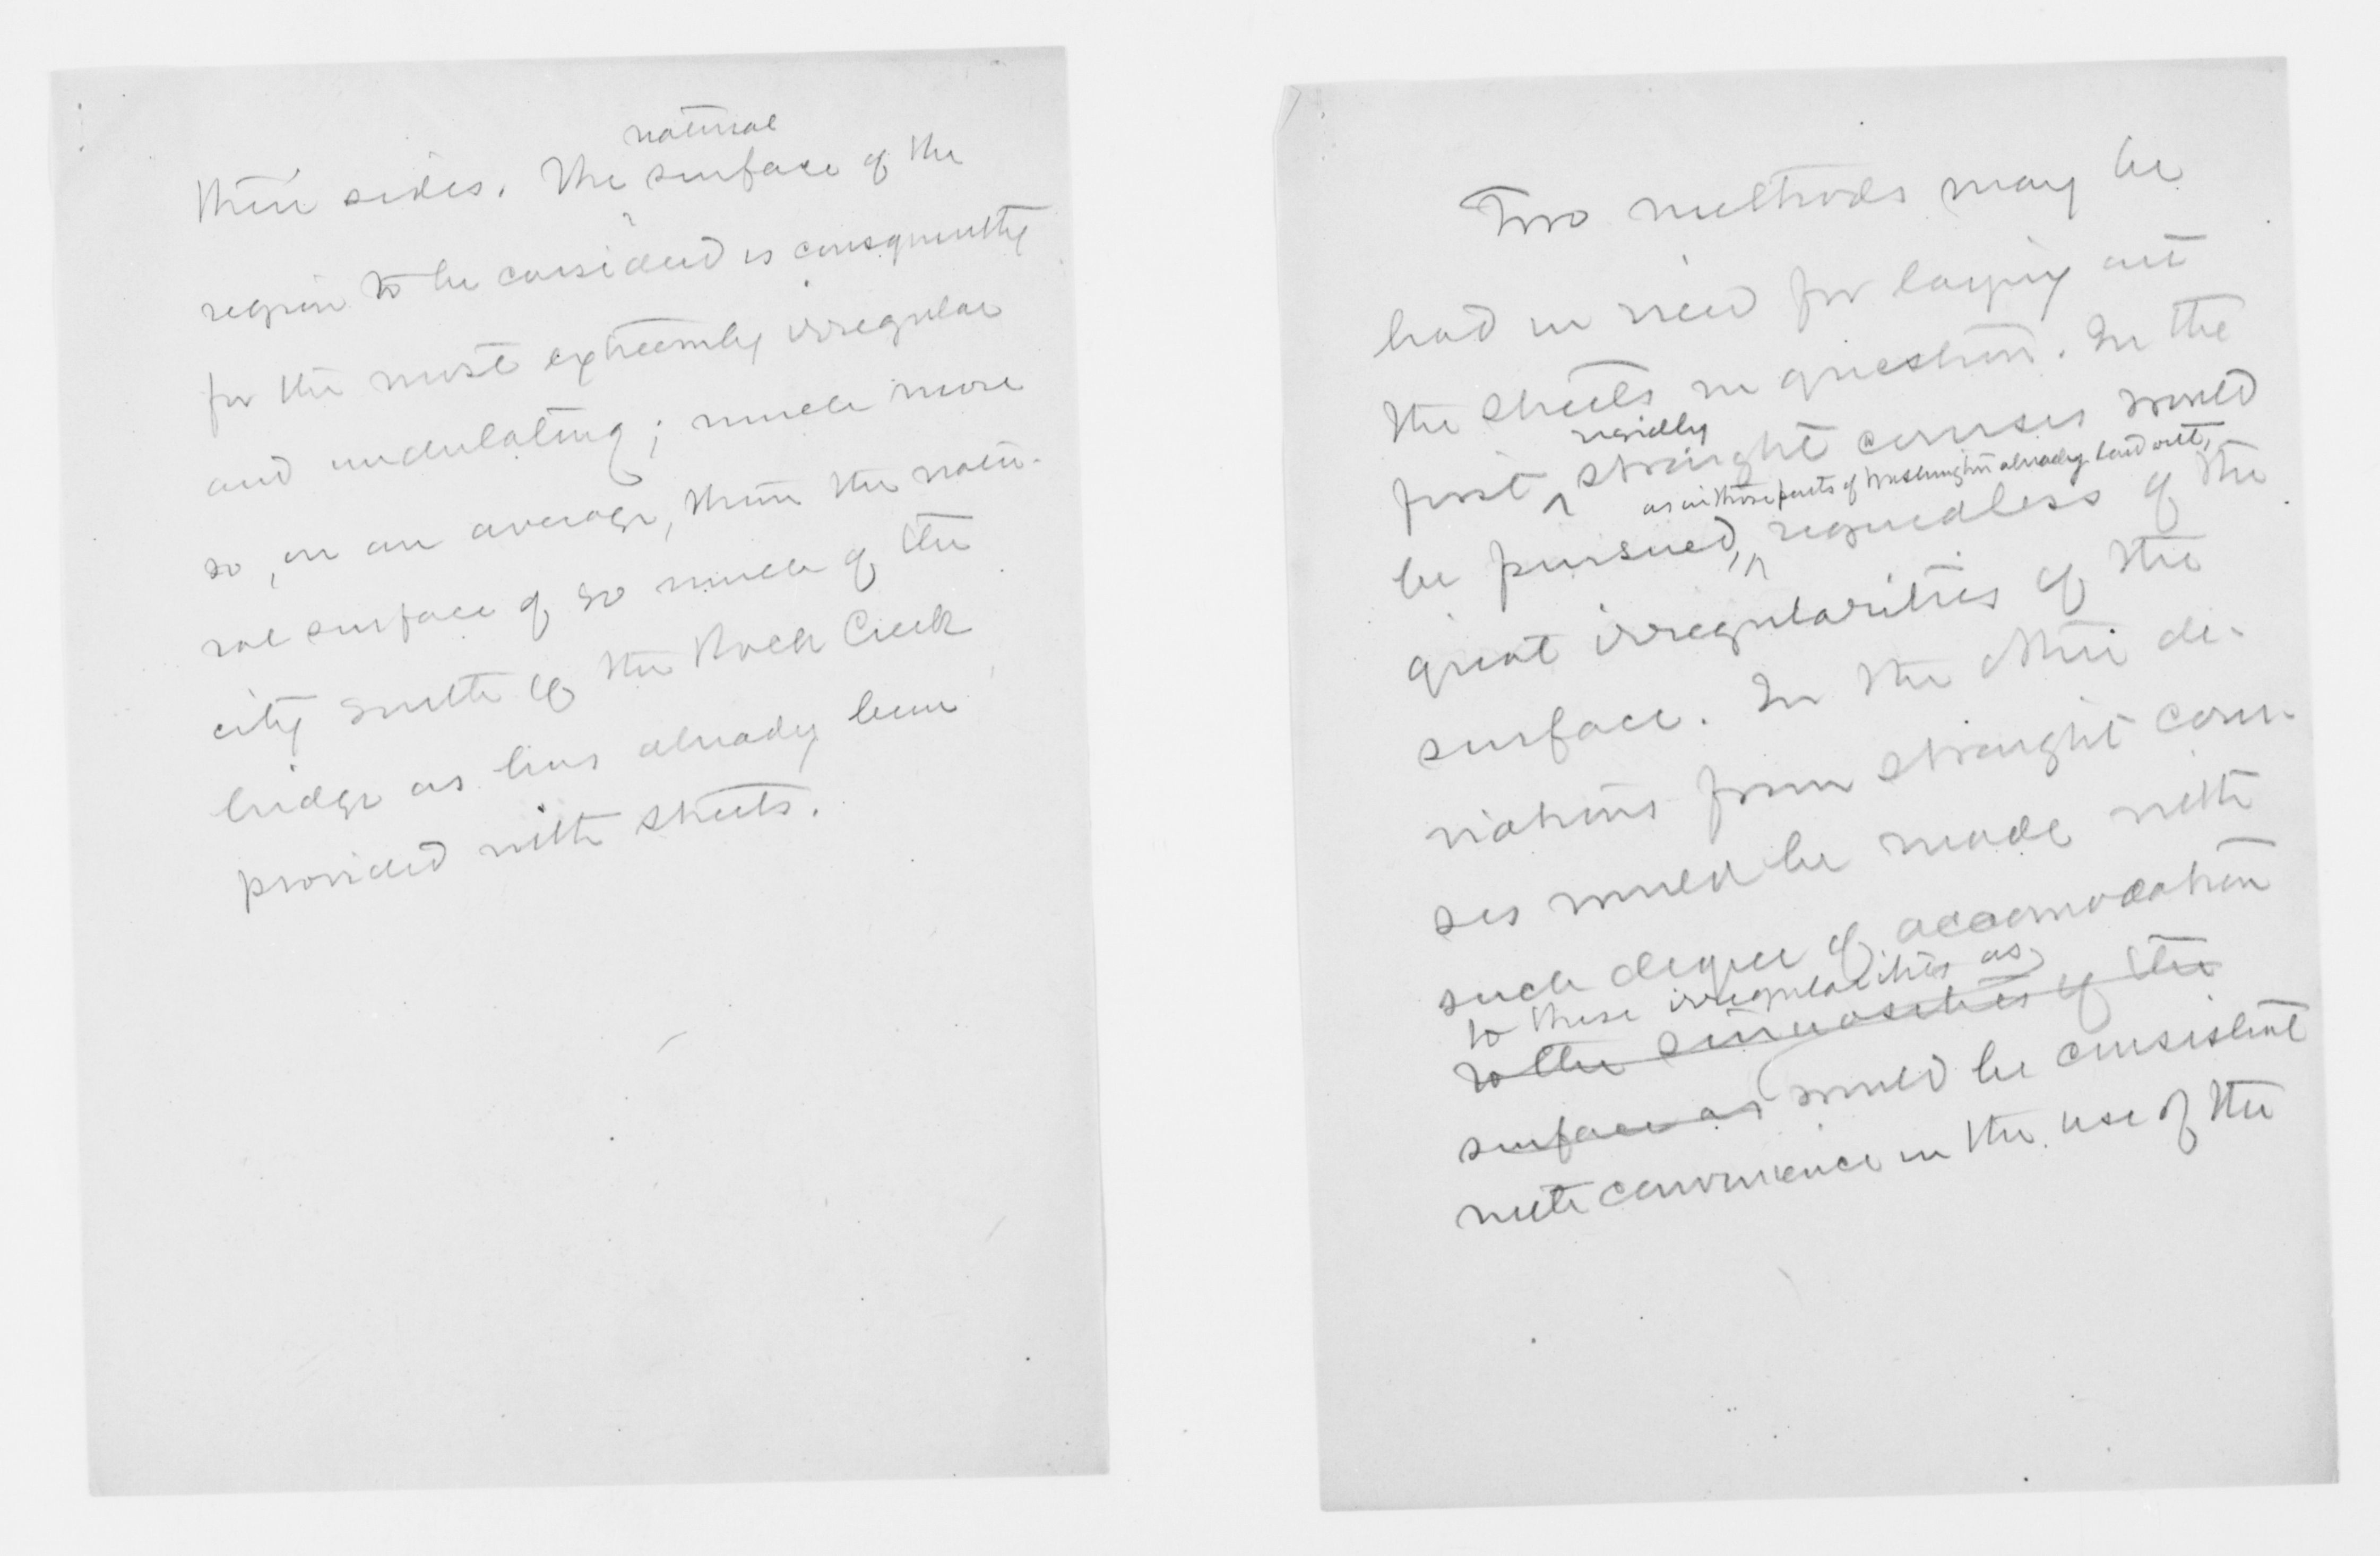 natural
their sides. The surface of the
region to be considered is consequently
for the most extreemly irregular
and undulating; much more
so, on an average, than the natu-
ral surface of so much of the
city south of the Rock Creek
bridge as has already been
provided with streets.
Two methods may be
had in view for laying out
the streets in question. In the
rigidly
first ^ straight courses would
as in those parts of Washington already laid out,
be pursued, ^ regardless of the
great irregularities of the
surface. In the other de-
viations from straight cour-
ses would be made with
such degree of accomodation
to these irregularities as
to the sinuosities of the
surface as would be consistent
with convenience in the use of the